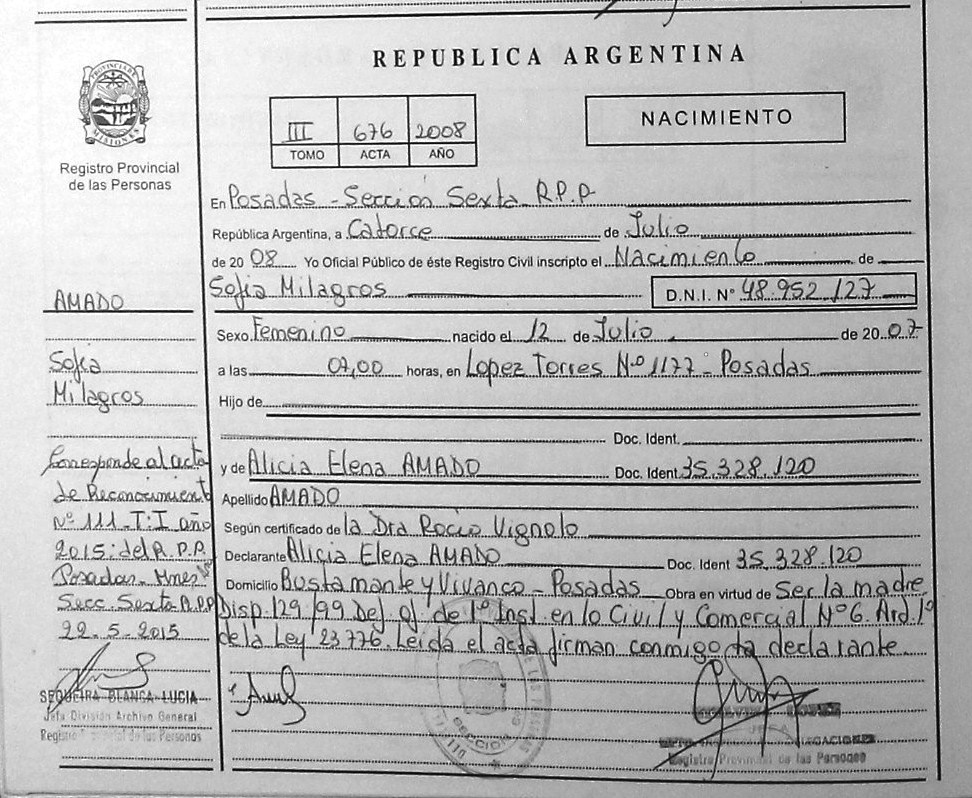 PROVINCIA DE
MISIONES
Registro Provincial
de las Personas
REPUBLICA ARGENTINA
III 676 2008
TOMO ACTA AÑO
NACIMIENTO
En Posadas - Sección Sexta R.P.P
República Argentina, a Catorce de Julio
de 20 08 Yo Oficial Público de éste Registro Civil inscripto el Nacimiento de
Sofia Milagros D.N.I. N° 48.952.127
Sexo Femenino nacido el 12 de Julio de 20 07
a las 07,00 horas, en Lopez Torres N.º 1177 - Posadas
Hijo de
Doc. Ident.
y de Alicia Elena AMADO Doc. Ident 35.328.120
Apellido AMADO
Según certificado de la Dra Rocio Vignolo
Declarante Alicia Elena AMADO Doc. Ident 35.328.120
Domicilio Bustamante y Vivanco - Posadas Obra en virtud de Ser la madre
Disp. 129/99 Def. of. de 1º Inst. en lo Civil y Comercial Nº 6. Ard. 1º
de la Ley 23776. Leida el acta firman conmigo la declarante.
AMADO
Sofia
Milagros
Corresponde al acta
de Reconocimiento
Nº 111 - T: I año
2015: del R.P.P.
Posadas - Mnes
Secc. Sexta R.P.P
22.5.2015
SEQUEIRA BLANCA LUCIA
Jefa División Archivo General
Registro Provincial de las Personas
SECCION
JEFA
DELEGACIONES
Registro Provincial de las Personas